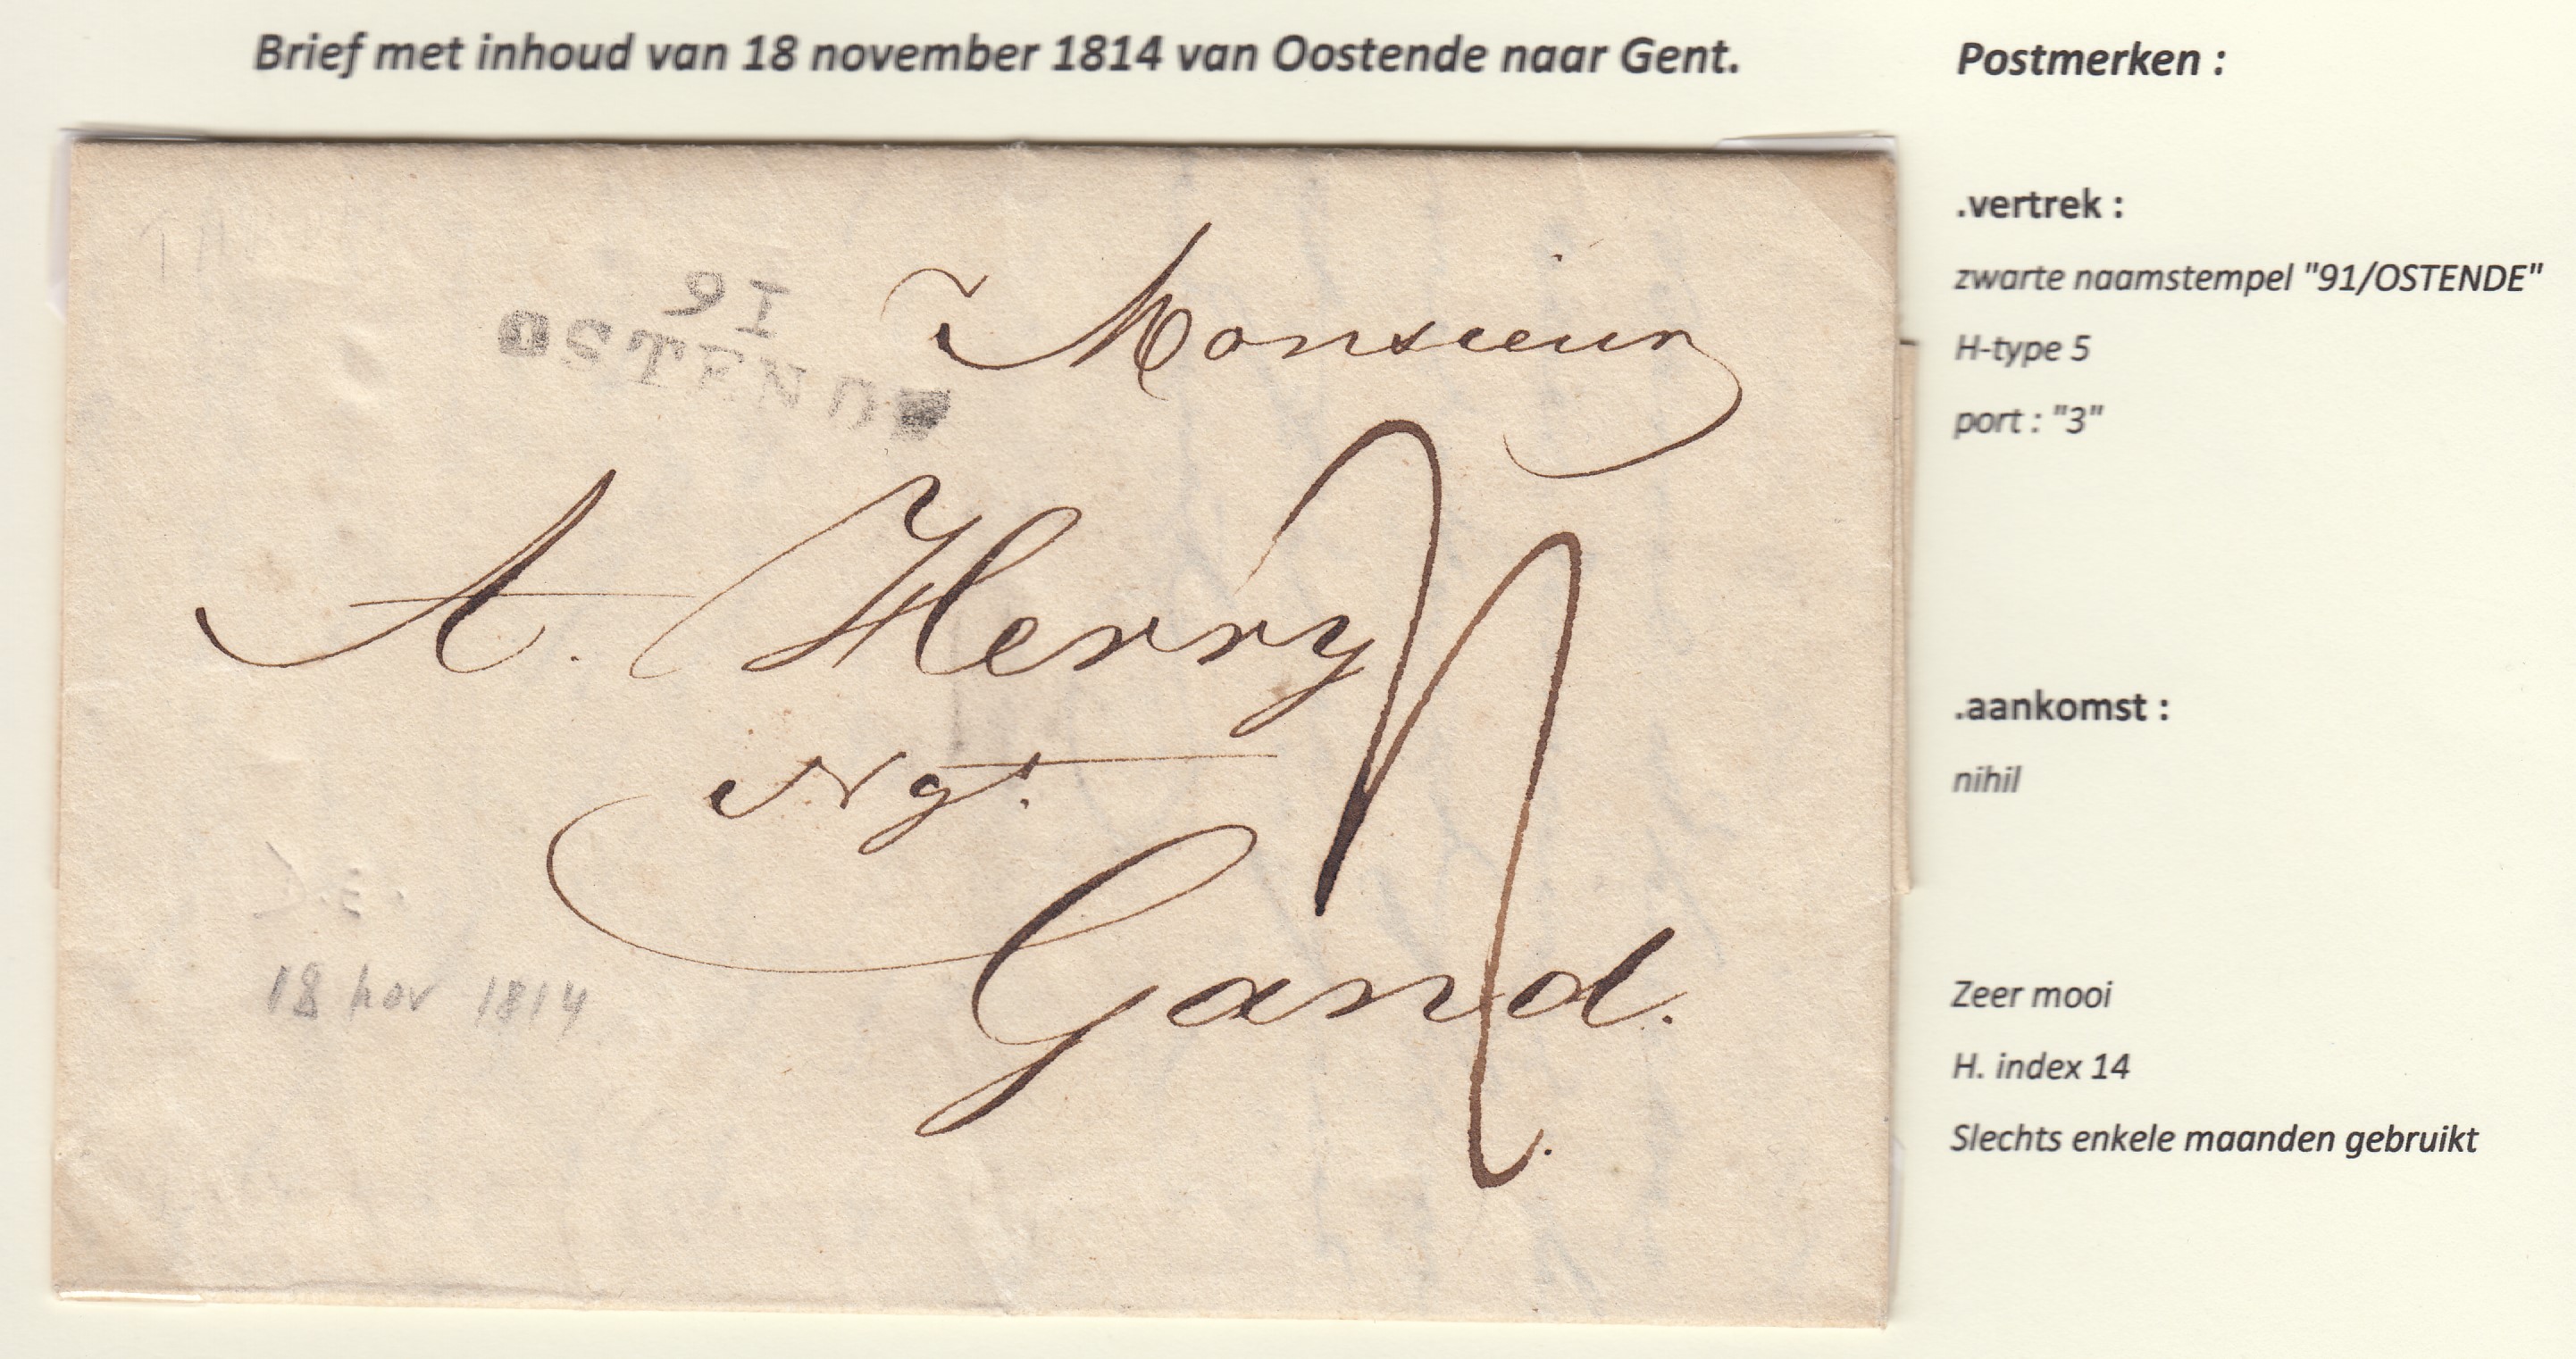 Brief met inhoud van 18 november 1814 van Oostende naar Gent.
91
OSTENDE
Monsieur
A. Herry
Ngt.
Gand.
18 nov 1814
Postmerken :
.vertrek :
zwarte naamstempel "91/OSTENDE"
H-type 5
port : "3"
.aankomst :
nihil
Zeer mooi
H. index 14
Slechts enkele maanden gebruikt